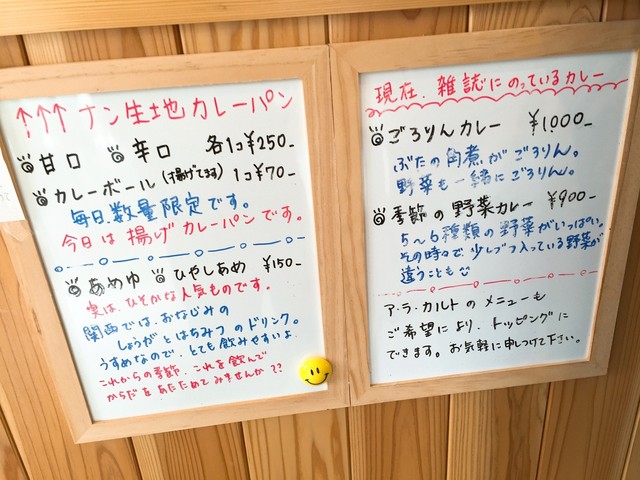 ↑↑↑ ナン生地カレーパン
甘口 辛口 各1コ¥250-
カレーボール(揚げてます) 1コ¥70-
毎日、数量限定です。
今日は揚げカレーパンです。
あめゆ ひやしあめ ¥150-
実は、ひそかな人気ものです。
関西では、おなじみの
しょうがとはちみつのドリンク。
うすめなので、とても飲みやすいよ.
これからの季節、これを飲んで
からだをあたためてみませんか??
現在、雑誌にのっているカレー
ごろりんカレー ¥1,000-
ぶたの角煮がごろりん。
野菜も一緒にごろりん。
季節の野菜カレー ¥900-
5〜6種類の野菜がいっぱい。
その時々で少しづつ入っている野菜が
違うことも
ア・ラ・カルトのメニューも
ご希望により、トッピングに
できます。お気軽に申しつけて下さい。